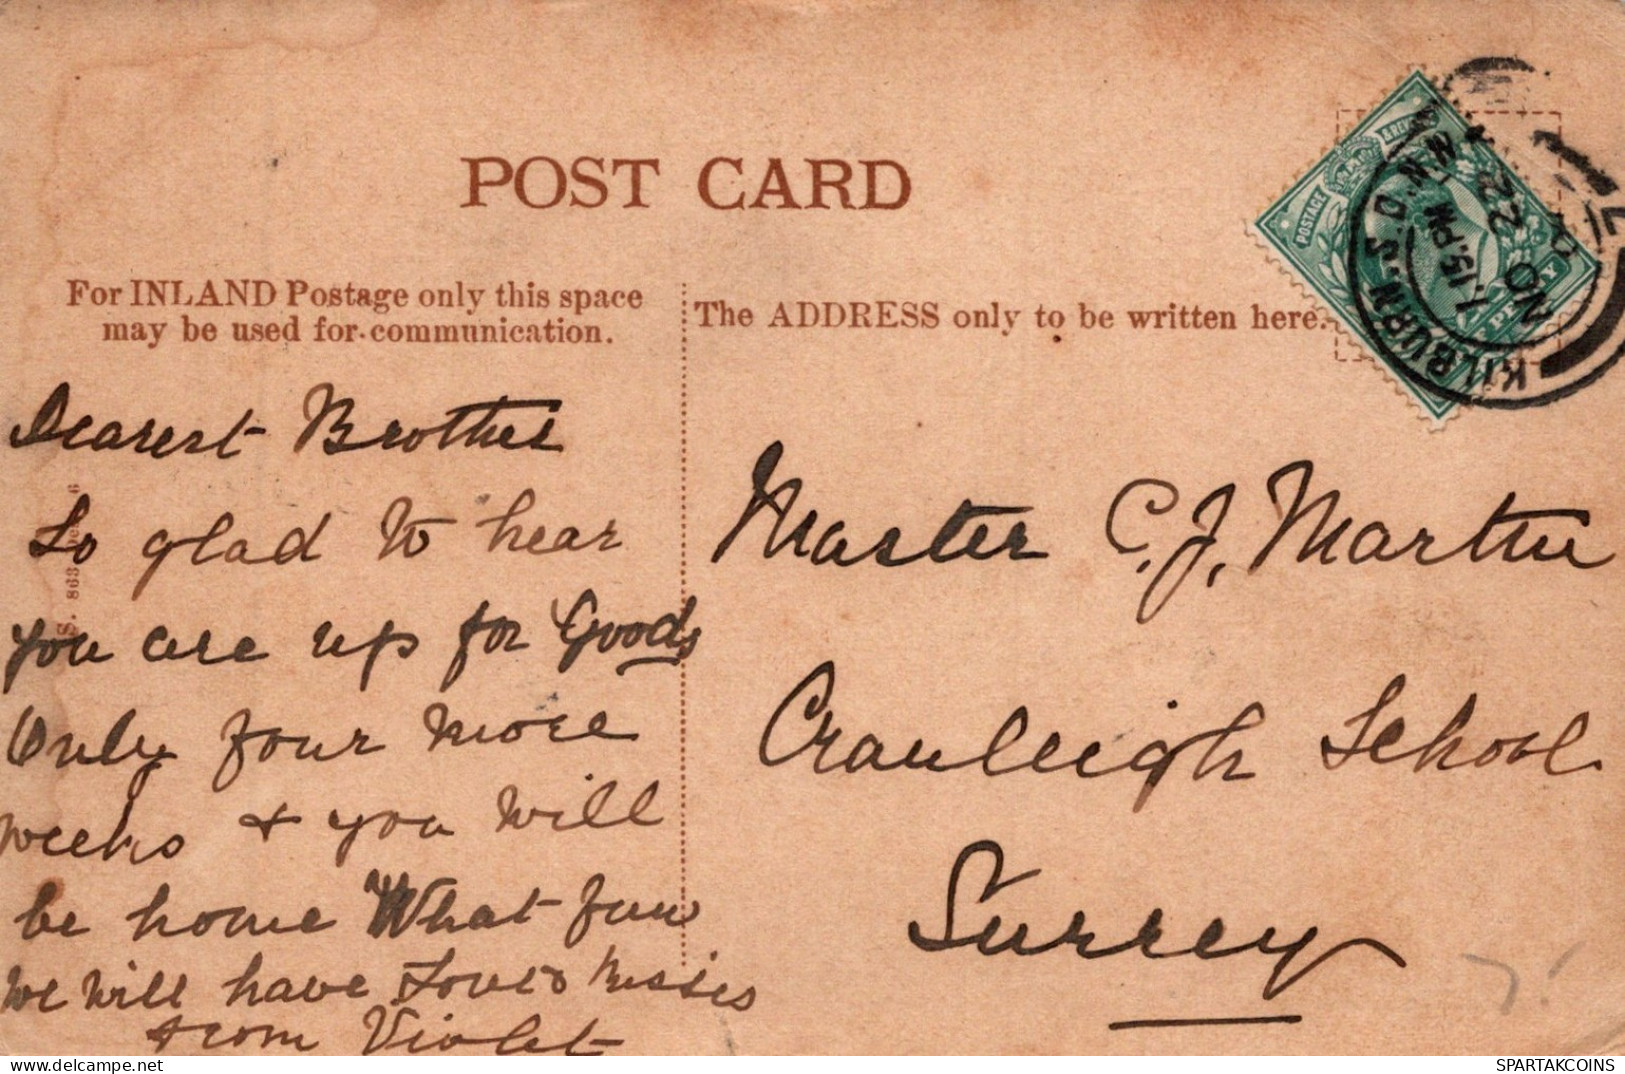 POST CARD
For INLAND Postage only this space
may be used for communication.
The ADDRESS only to be written here.
POSTAGE & REV
PENNY
KILBURN.S.D.N.W.
7.15.PM
NO 22
Dearest Brother
So glad to hear
you are up for Goods
Only four more
weeks & you will
be home What fun
we will have Love & kisses
from Violet
Master C. J. Martin
Cranleigh School
Surrey
S. 863
SPARTAKCOINS